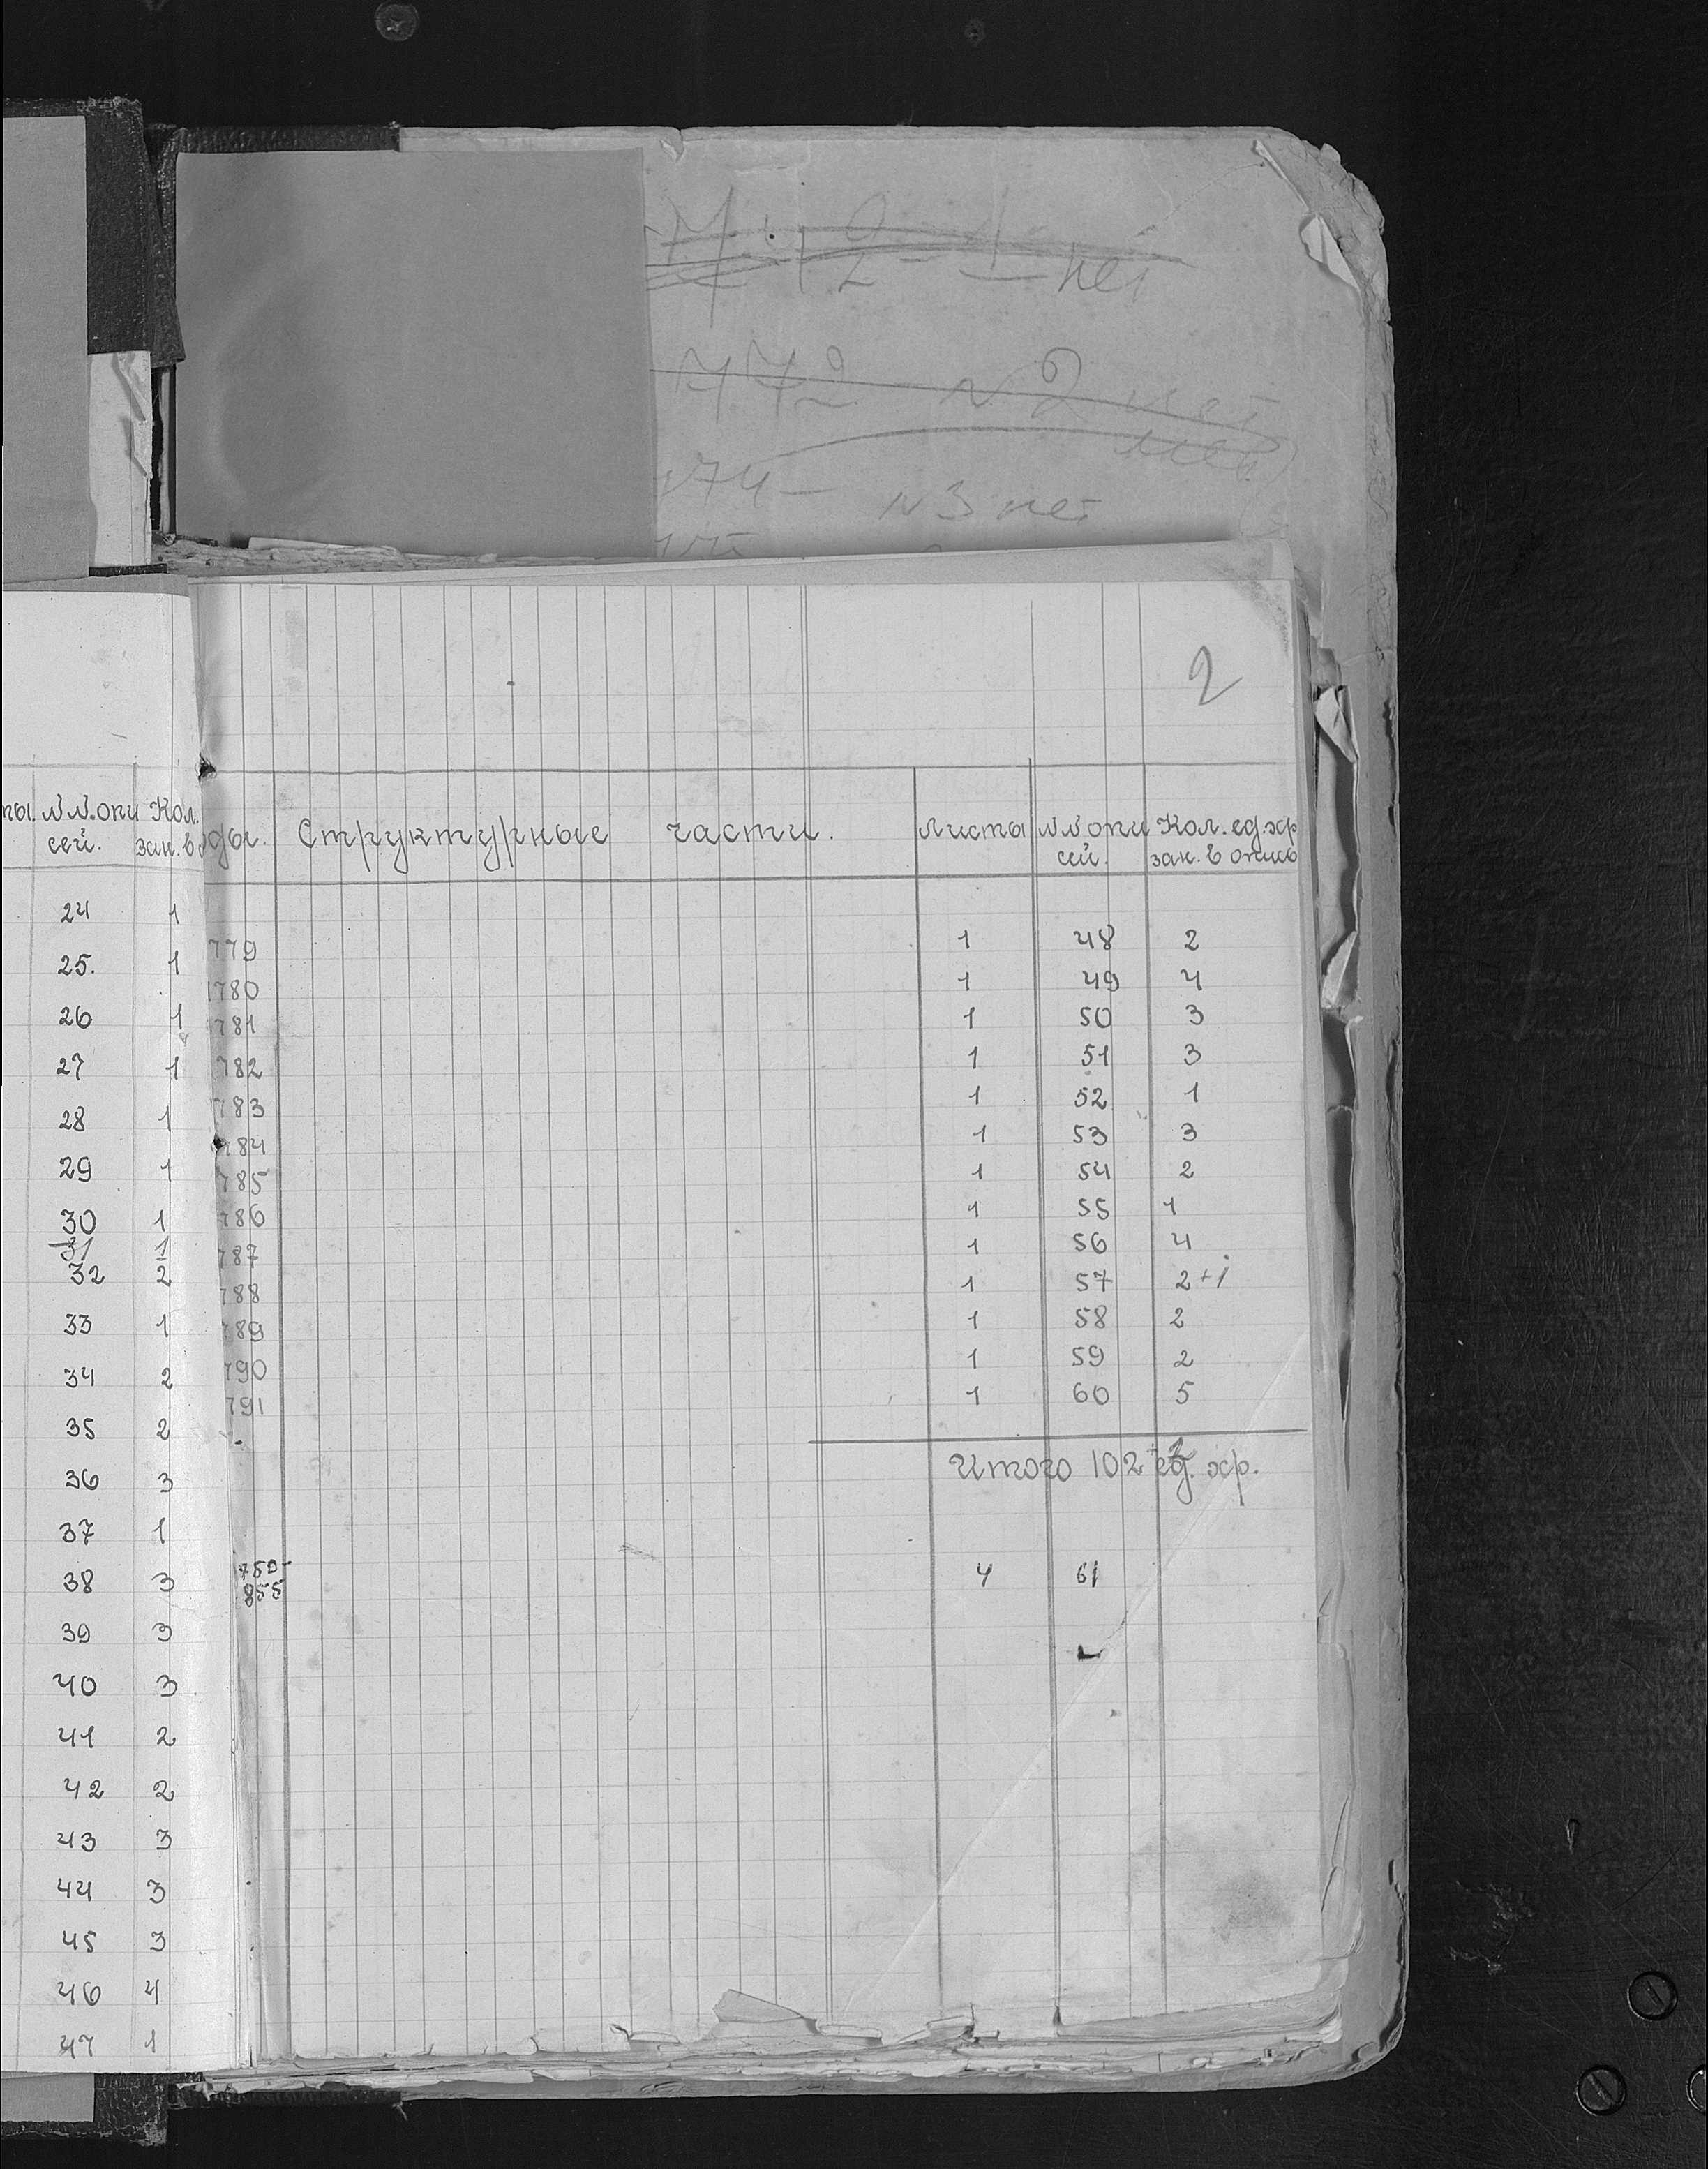 нет
772 N 2 нет
174 – N 3 нет
2
NN опи Кол.
сей. зак. в
24 1
25. 1
26 1
27 1
28 1
29 1
30 1
31 1
32 2
33 1
34 2
35 2
36 3
37 1
38 3
39 3
40 3
41 2
42 2
43 3
44 3
45 3
46 4
47 1
оды. Структурные части. Листы NN опи Кол. ед. хр
сей. зак. в опись
779 1 48 2
1780 1 49 4
781 1 50 3
782 1 51 3
783 1 52 1
784 1 53 3
785 1 54 2
786 1 55 1
787 1 56 4
788 1 57 2+1
789 1 58 2
790 1 59 2
791 1 60 5
Итого 102 ед. хр.
750-
855 4 61